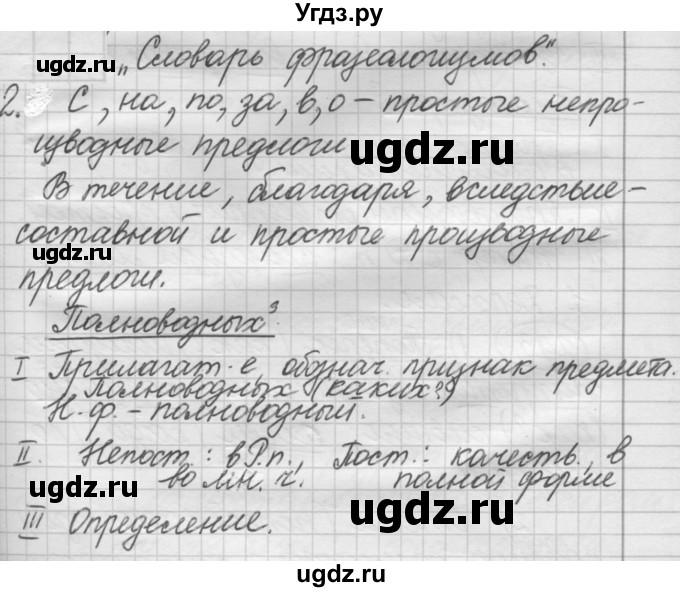 Угдз.ру
„Словарь фразеологизмов“.
2. С, на, по, за, в, о – простые непро-
изводные предлоги
В течение, благодаря, вследствие –
составной и простые производные
предлоги.
Полноводных³
I Прилагат-е, обознач. признак предмета.
Полноводных (каких?)
Н.ф. – полноводный.
II. Непост.: в Р.п., Пост.: качеств., в
во мн. ч. полной форме
III Определение.
ugdz.ru
ugdz.ru
ugdz.ru
ugdz.ru
ugdz.ru
ugdz.ru
ugdz.ru
ugdz.ru